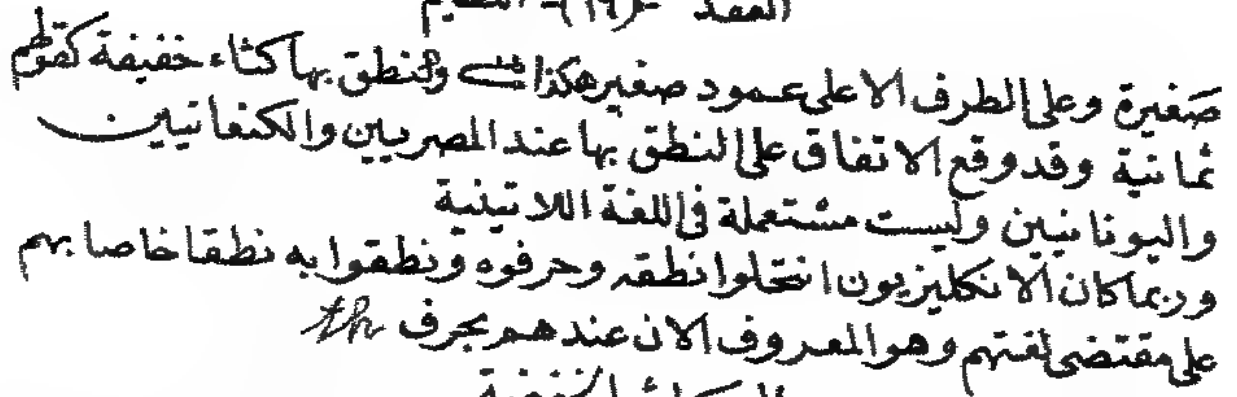 العقد -(١٦)- النظيم
صغيرة وعلى الطرف الاعلى عمود صغير هكذا والنطق بها كثاء خفيفة كقولهم
ثمانية وقد وقع الاتفاق على النطق بها عند المصريين والكنعانيين
واليونانيين وليست مستعملة في اللغة اللاتينية
وربما كان الانكليزيون انتحلوا نطقه وحرفوه ونطقوا به نطقا خاصا بهم
على مقتضى لغتهم وهو المعروف الان عندهم بحرف th